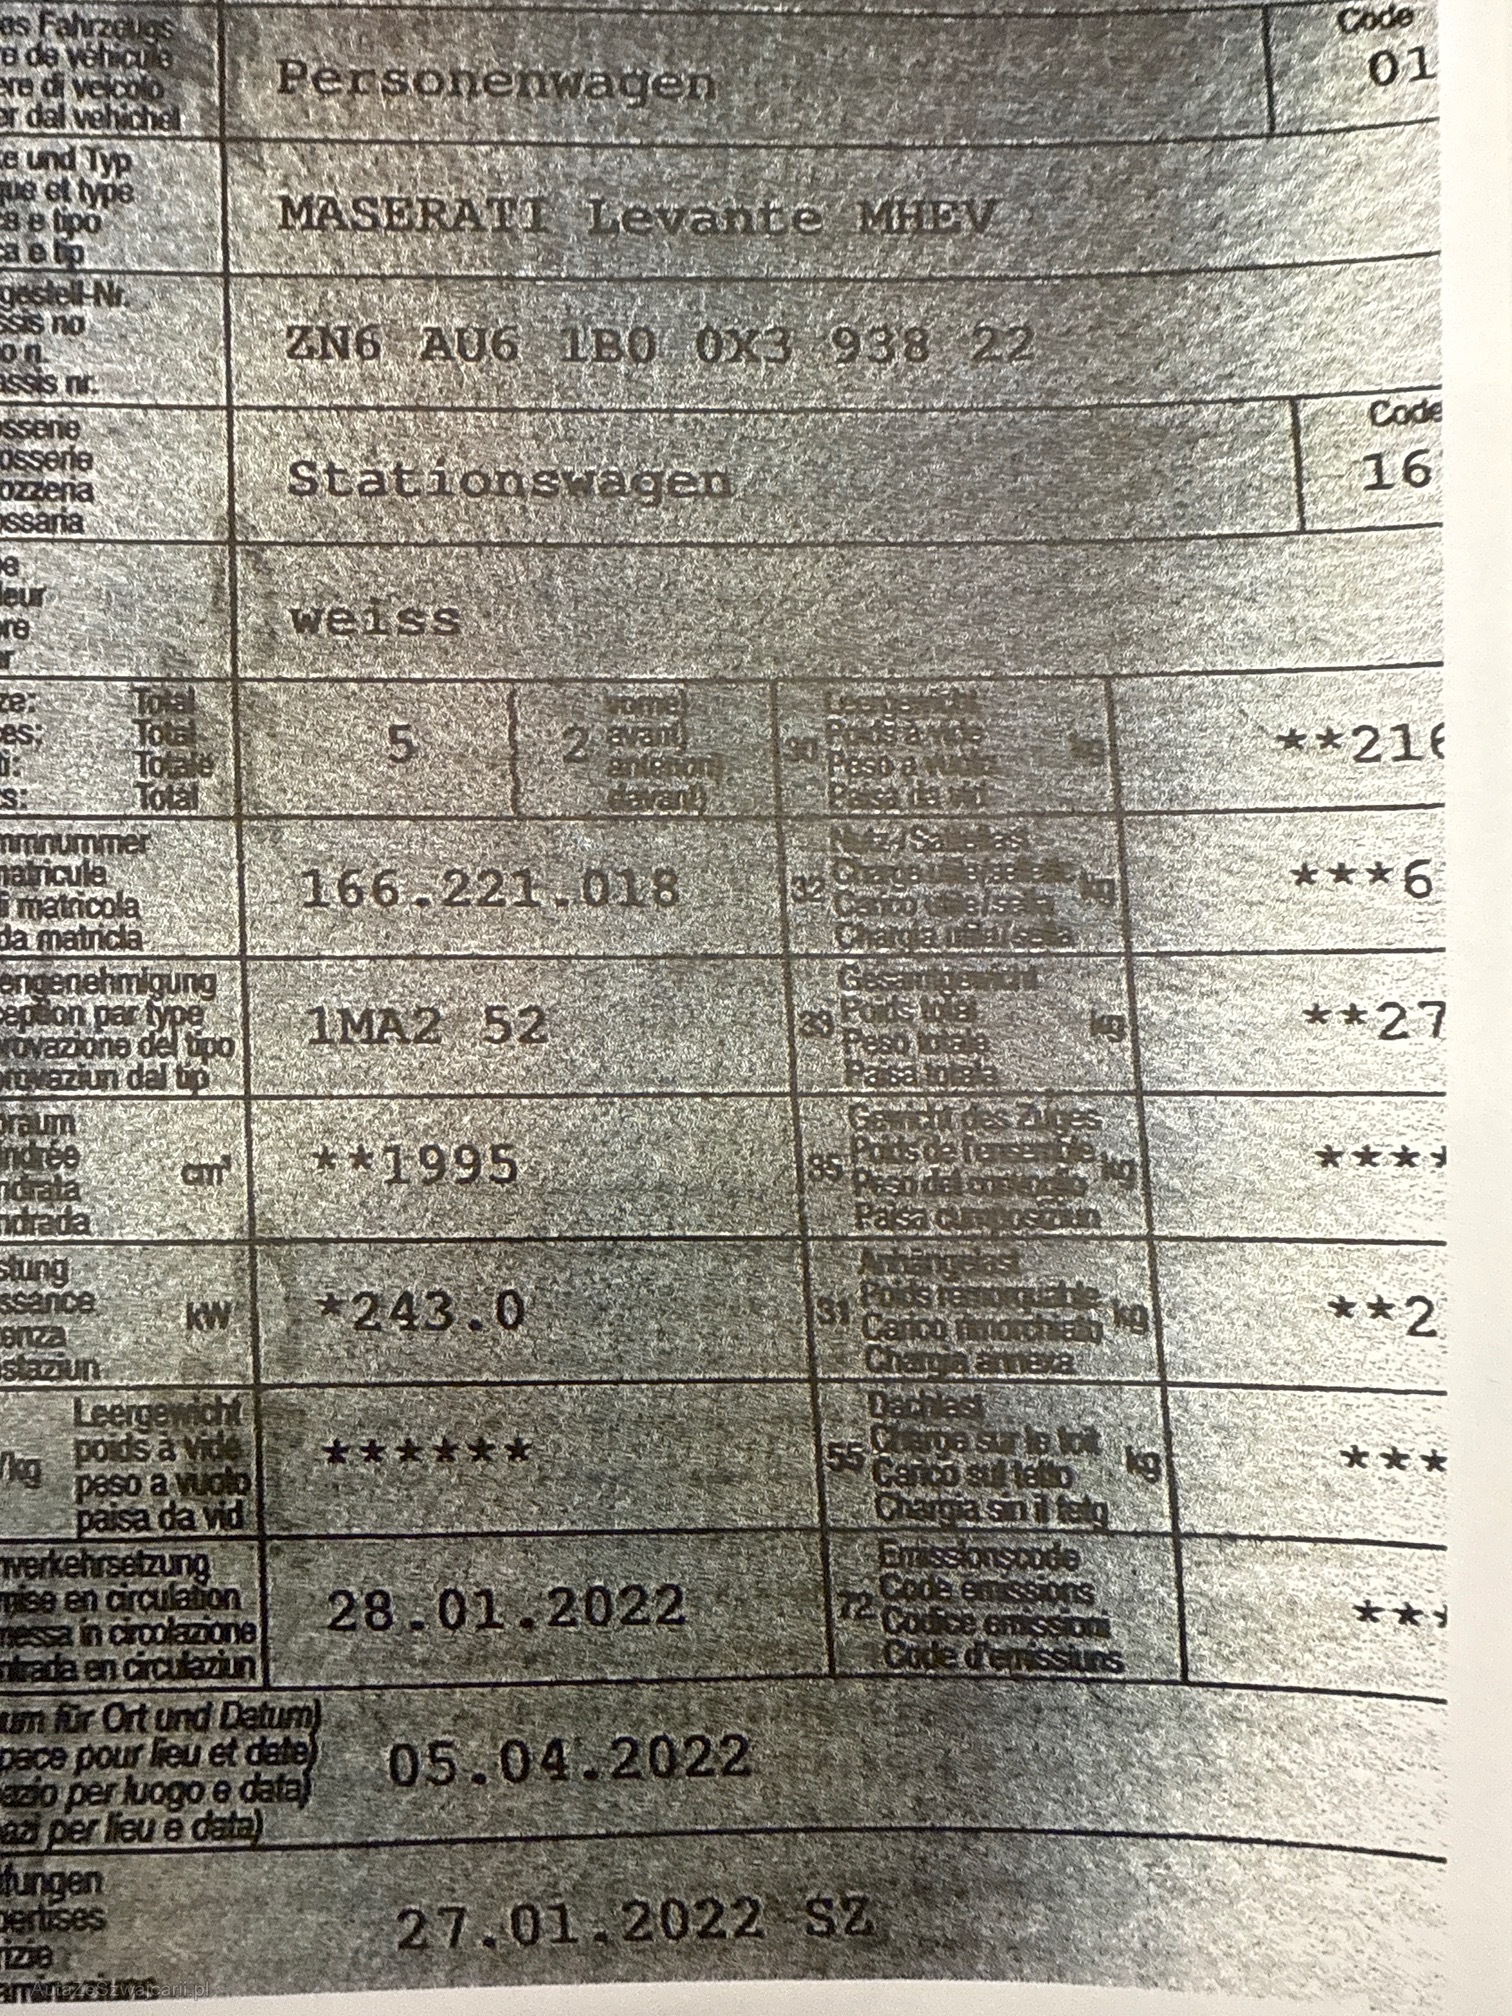 es Fahrzeugs
e de véhicule
ere di veicolo
er dal vehichel
Personenwagen
Code
01
e und Typ
que et type
ca e tipo
ca e tip
MASERATI Levante MHEV
gestell-Nr.
ssis no
o n.
assis nr.
ZN6 AU6 1B0 0X3 938 22
osserie
osserie
ozzeria
ossaria
Stationswagen
Code
16
leur
weiss
Total
Total
Totale
Total
5
2
vorne)
avant)
anteriori)
davant)
30
Leergewicht
Poids à vide
Peso a vuoto
Paisa da vid
kg
**216
mmnummer
matricule
i matricola
da matricla
166.221.018
32
Nutz-/Sattellast
Charge utile/sellette
Carico utile/sella
Chargia utila/sella
kg
***6
engenehmigung
ception par type
rovazione del tipo
provaziun dal tip
1MA2 52
33
Gesamtgewicht
Poids total
Peso totale
Paisa totala
kg
**27
braum
indrée
ndrata
ndrada
cm³
**1995
35
Gewicht des Zuges
Poids de l'ensemble
Peso del convoglio
Paisa cumposiziun
kg
****
stung
ssance
enza
staziun
kW
*243.0
31
Anhängelast
Poids remorquable
Carico rimorchiato
Chargia annexa
kg
**2
/kg
Leergewicht
poids à vide
peso a vuoto
paisa da vid
******
55
Dachlast
Charge sur le toit
Carico sul tetto
Chargia sin il tetg
kg
***
nverkehrsetzung
mise en circulation
messa in circolazione
ntrada en circulaziun
28.01.2022
72
Emissionscode
Code émissions
Codice emissioni
Code d'emissiuns
***
um für Ort und Datum)
pace pour lieu et date)
azio per luogo e data)
azi per lieu e data)
05.04.2022
fungen
pertises
rizie
aminaziuns
27.01.2022 SZ
AutaZeSzwajcarii.pl